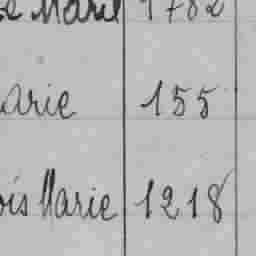 Marie 1782
arie 155
ois Marie 1218